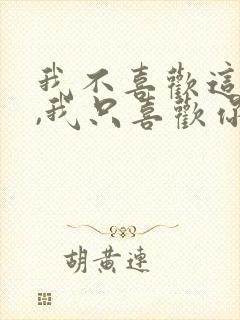 我不喜歡這
,我只喜歡你
胡黃連